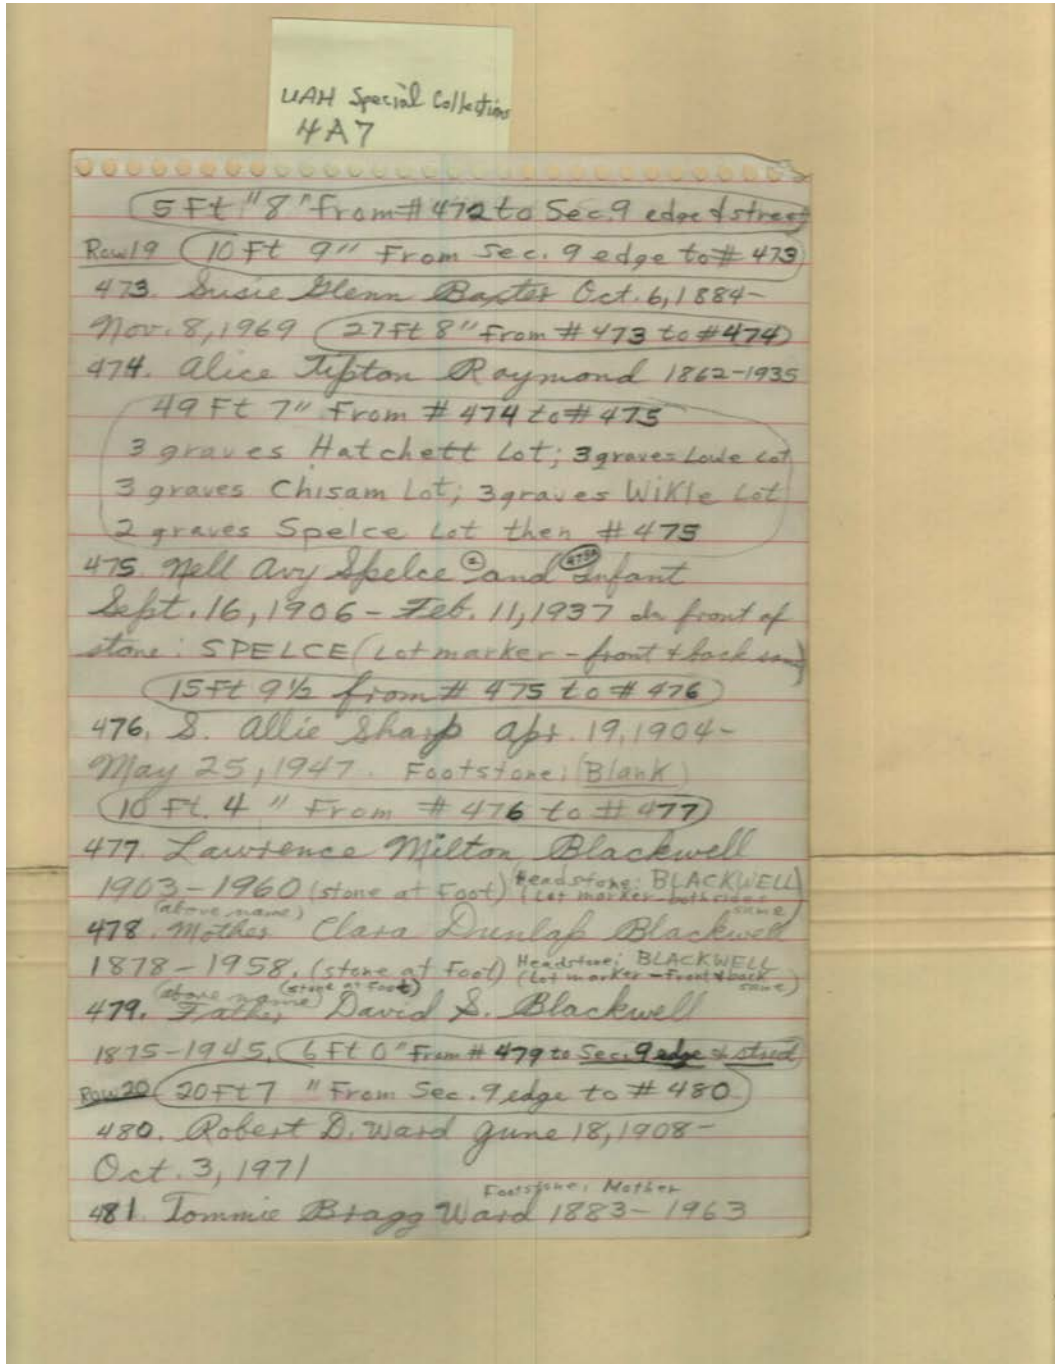 UAH Special Collections
4A7
5 Ft "8" From # 472 to Sec. 9 edge & street
Row 19 10 Ft 9" From Sec. 9 edge to # 473
473. Susie Glenn Baxter Oct. 6, 1884-
Nov. 8, 1969 27 Ft 8" From # 473 to # 474
474. Alice Tipton Raymond 1862-1935
49 Ft 7" From # 474 to # 475
3 graves Hatchett Lot; 3 graves Lowe Lot
3 graves Chisam Lot; 3 graves Wikle Lot
2 graves Spelce Lot then # 475
475. Nell Avy Spelce and Infant
Sept. 16, 1906 - Feb. 11, 1937 In front of
stone: SPELCE (Lot marker - front & back same)
15 Ft 9 1/2 from # 475 to # 476
476. S. Allie Sharp Apr. 19, 1904-
May 25, 1947. Footstone: (Blank)
10 Ft. 4 " From # 476 to # 477
477. Lawrence Milton Blackwell
1903-1960 (stone at Foot) (Headstone: BLACKWELL)
(Lot marker - both sides same)
(above name)
478. Mother Clara Dunlap Blackwell
1878-1958. (stone at Foot) Headstone: BLACKWELL
(Lot marker - Front & back same)
(above name) (stone at Foot)
479. Father David S. Blackwell
1875-1945. 6 Ft 0" From # 479 to Sec. 9 edge & street
Row 20 20 Ft 7 " From Sec. 9 edge to # 480
480. Robert D. Ward June 18, 1908-
Oct. 3, 1971
Footstone: Mother
481. Tommie Bragg Ward 1883-1963